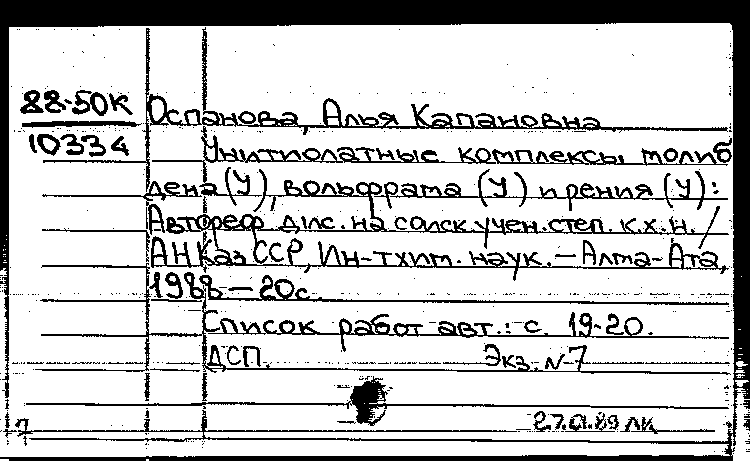 88-50К
10334
Оспанова, Алья Капановна
Унитиолатные комплексы молиб
дена (У), вольфрама (У) и рения (У):
Автореф дис. на соиск. учен. степ. к.х.н. /
АН КазССР, Ин-т хим. наук. — Алма-Ата,
1988 — 20с.
Список работ авт.: с. 19-20.
ДСП. Экз. N 7
27.01.89 ЛК